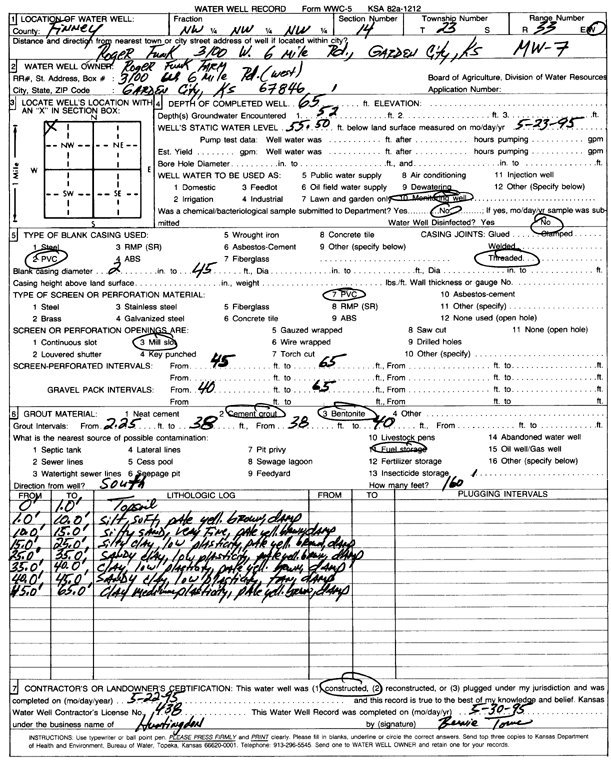 WATER WELL RECORD Form WWC-5 KSA 82a-1212
1 LOCATION OF WATER WELL: Fraction Section Number Township Number Range Number
County: Finney NW ¼ NW ¼ NW ¼ 14 T 23 S R 33 E/W
Distance and direction from nearest town or city street address of well if located within city?
Roger Funk 3100 W. 6 Mile Rd., Garden City, Ks MW-7
2 WATER WELL OWNER: Roger Funk Farm
RR#, St. Address, Box # : 3100 W 6 Mile Rd. (west) Board of Agriculture, Division of Water Resources
City, State, ZIP Code : Garden City, Ks 67846 Application Number:
3 LOCATE WELL'S LOCATION WITH AN "X" IN SECTION BOX:
N
X
NW NE
W E
SW SE
S
1 Mile
4 DEPTH OF COMPLETED WELL 65 ft. ELEVATION:
Depth(s) Groundwater Encountered 1 52 ft. 2 ft. 3 ft.
WELL'S STATIC WATER LEVEL 55.50 ft. below land surface measured on mo/day/yr 5-23-95
Pump test data: Well water was ft. after hours pumping gpm
Est. Yield gpm: Well water was ft. after hours pumping gpm
Bore Hole Diameter in. to ft., and in. to ft.
WELL WATER TO BE USED AS: 5 Public water supply 8 Air conditioning 11 Injection well
1 Domestic 3 Feedlot 6 Oil field water supply 9 Dewatering 12 Other (Specify below)
2 Irrigation 4 Industrial 7 Lawn and garden only 10 Monitoring well
Was a chemical/bacteriological sample submitted to Department? Yes No ; If yes, mo/day/yr sample was sub-
mitted Water Well Disinfected? Yes No
5 TYPE OF BLANK CASING USED: 5 Wrought iron 8 Concrete tile CASING JOINTS: Glued Clamped
1 Steel 3 RMP (SR) 6 Asbestos-Cement 9 Other (specify below) Welded
2 PVC 4 ABS 7 Fiberglass Threaded
Blank casing diameter 2 in. to 45 ft., Dia in. to ft., Dia in. to ft.
Casing height above land surface in., weight lbs./ft. Wall thickness or gauge No.
TYPE OF SCREEN OR PERFORATION MATERIAL: 7 PVC 10 Asbestos-cement
1 Steel 3 Stainless steel 5 Fiberglass 8 RMP (SR) 11 Other (specify)
2 Brass 4 Galvanized steel 6 Concrete tile 9 ABS 12 None used (open hole)
SCREEN OR PERFORATION OPENINGS ARE: 5 Gauzed wrapped 8 Saw cut 11 None (open hole)
1 Continuous slot 3 Mill slot 6 Wire wrapped 9 Drilled holes
2 Louvered shutter 4 Key punched 7 Torch cut 10 Other (specify)
SCREEN-PERFORATED INTERVALS: From 45 ft. to 65 ft., From ft. to ft.
From ft. to ft., From ft. to ft.
GRAVEL PACK INTERVALS: From 40 ft. to 65 ft., From ft. to ft.
From ft. to ft., From ft. to ft.
6 GROUT MATERIAL: 1 Neat cement 2 Cement grout 3 Bentonite 4 Other
Grout Intervals: From 2.25 ft. to 38 ft., From 38 ft. to 40 ft., From ft. to ft.
What is the nearest source of possible contamination: 10 Livestock pens 14 Abandoned water well
1 Septic tank 4 Lateral lines 7 Pit privy 11 Fuel storage 15 Oil well/Gas well
2 Sewer lines 5 Cess pool 8 Sewage lagoon 12 Fertilizer storage 16 Other (specify below)
3 Watertight sewer lines 6 Seepage pit 9 Feedyard 13 Insecticide storage
Direction from well? South How many feet? 160
FROM TO LITHOLOGIC LOG FROM TO PLUGGING INTERVALS
0' 1.0' Topsoil
1.0' 10.0' Silt, soft, pale yell. brown, damp
10.0' 15.0' Silty sand, very fine, pale yell. brown, damp
15.0' 25.0' Silty clay, low plasticity, pale yell. brown, damp
25.0' 35.0' Sandy clay, low plasticity, pale yell. brown, damp
35.0' 40.0' Clay, low plasticity, pale yell. brown, damp
40.0' 45.0' Sandy clay, low plasticity, tan, damp
45.0' 65.0' Clay medium plasticity, pale yell. brown, damp
7 CONTRACTOR'S OR LANDOWNER'S CERTIFICATION: This water well was (1) constructed, (2) reconstructed, or (3) plugged under my jurisdiction and was
completed on (mo/day/year) 5-22-95 and this record is true to the best of my knowledge and belief. Kansas
Water Well Contractor's License No. 438 This Water Well Record was completed on (mo/day/yr) 5-30-95
under the business name of Huntingdon by (signature) Bernie Towne
INSTRUCTIONS: Use typewriter or ball point pen. PLEASE PRESS FIRMLY and PRINT clearly. Please fill in blanks, underline or circle the correct answers. Send top three copies to Kansas Department
of Health and Environment, Bureau of Water, Topeka, Kansas 66620-0001. Telephone: 913-296-5545. Send one to WATER WELL OWNER and retain one for your records.